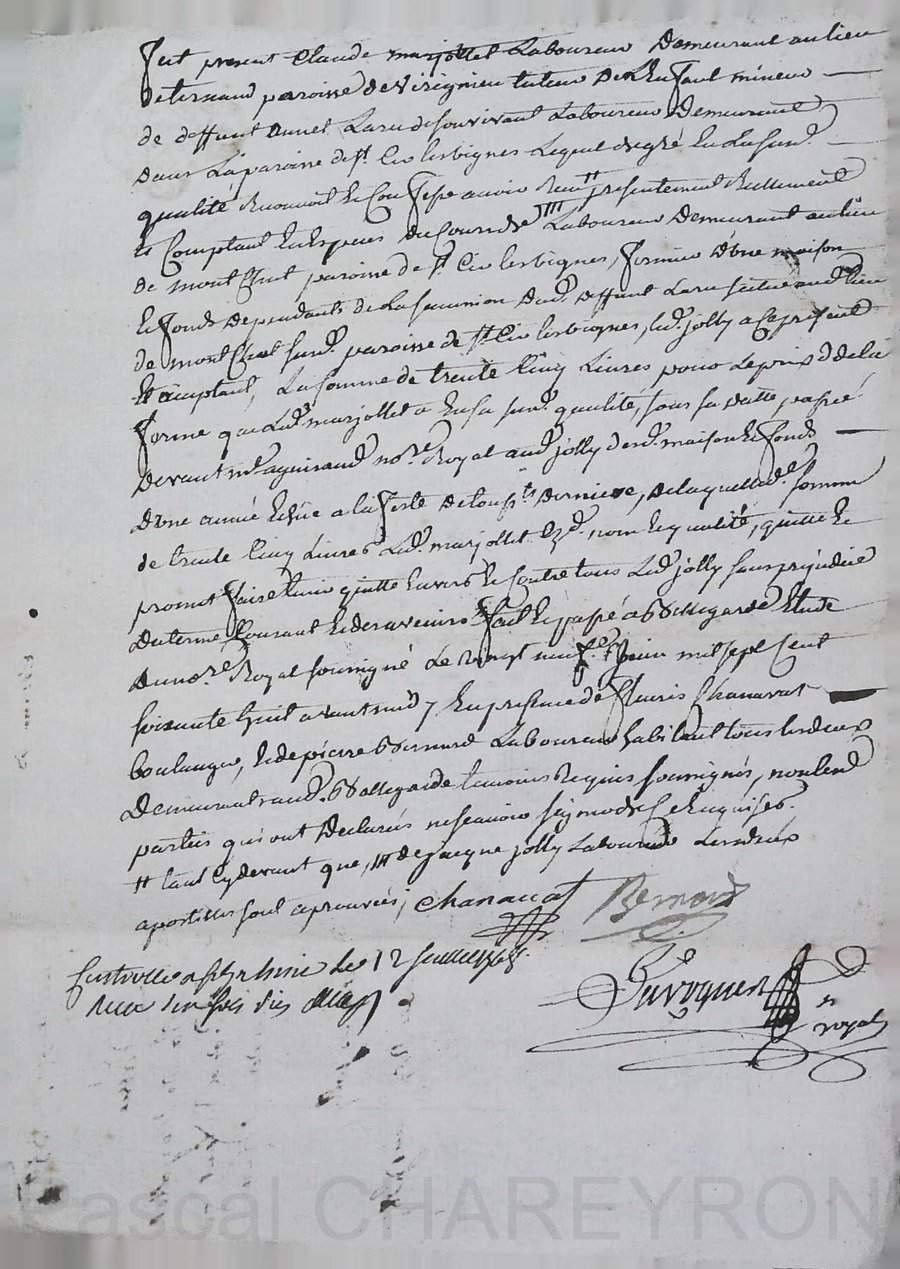 fut present Claude marjollet Laboureur Demeurant au lieu
de ternaud paroisse de Virignieu tuteur De L'Enfant mineur
de deffunt annet Laru de son vivant Laboureur Demeurant
dans La paroisse de st Cir les vignes Lequel de gré En La sund.
qualité Reconnoit Et Confesse avoir Reçu tt présentement Reellement
Et Comptant En Espèces du Cours de //// Laboureur Demeurant au lieu
de mont Chut paroisse de st Cir les vignes, fermier d'une maison
Et fonds dependants de La succession dud. deffunt Laru scitué aud. lieu
de mont Chut sund. paroisse de st Cir les vignes, led. jolly a Ce présent
Et acceptant, La somme de trente Cinq Livres pour Le prix de la
ferme que Led. marjollet a En sa sund. qualité, sous sa datte, passé
devant me aguiraud nore Royal aud. jolly desd. maison Et fonds
d'une année Echue a la feste de touss.ts derniere, De laquelle de somme
de trente Cinq Livres Led. marjollet Esd. nom Et qualité, quitte Et
promet faire tenir quitte Envers Et Contre tous Led. jolly sans préjudice
du terme Courant Et de ravenir fait Et passé a Bellegarde Etude
du nore Royal soussigné Le vingt neufe juin mil sept Cent
soixante huit avant midy En présence de fleuris Chanavat
boulanger, Et de pierre Bernard Laboureur habitant tous Les deux
Demeurant aud. Bellegarde temoins Requis soussignés, non Les
parties qui ont Declarés ne scavoir signer de Ce Enquises.
tt tant cy devant que, //// de jacque jolly Laboureur Les deux
apostilles sont aprouvées, Chanavat Bernard
Controllé a st le 12 juillet 1768
Reçu six sols
n
royal
Pascal CHAREYRON